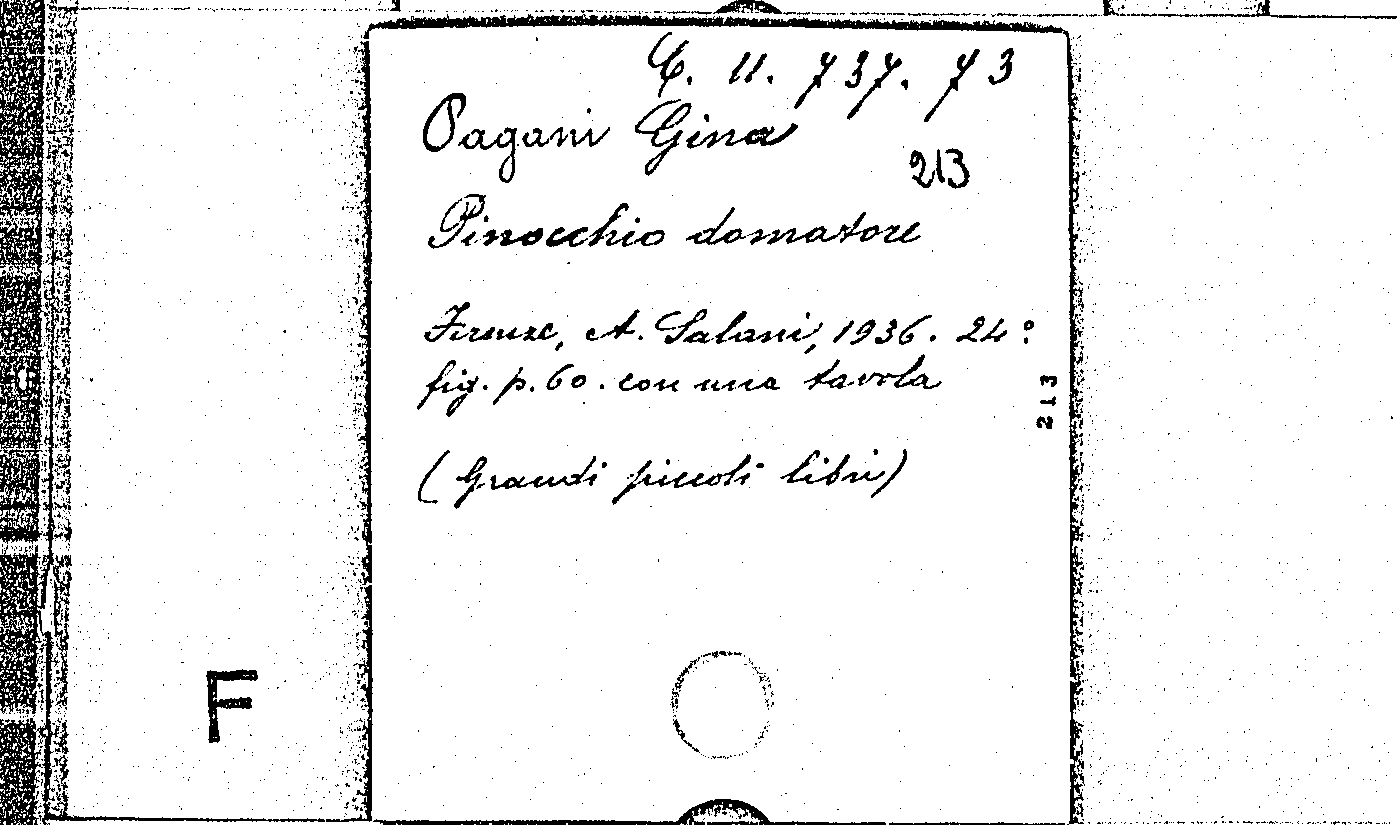 C. 11. 737. 73
Pagani Gina
213
Pinocchio domatore
Firenze, A. Salani, 1936. 24°.
fig. p. 60. con una tavola
213
(Grandi piccoli libri)
F